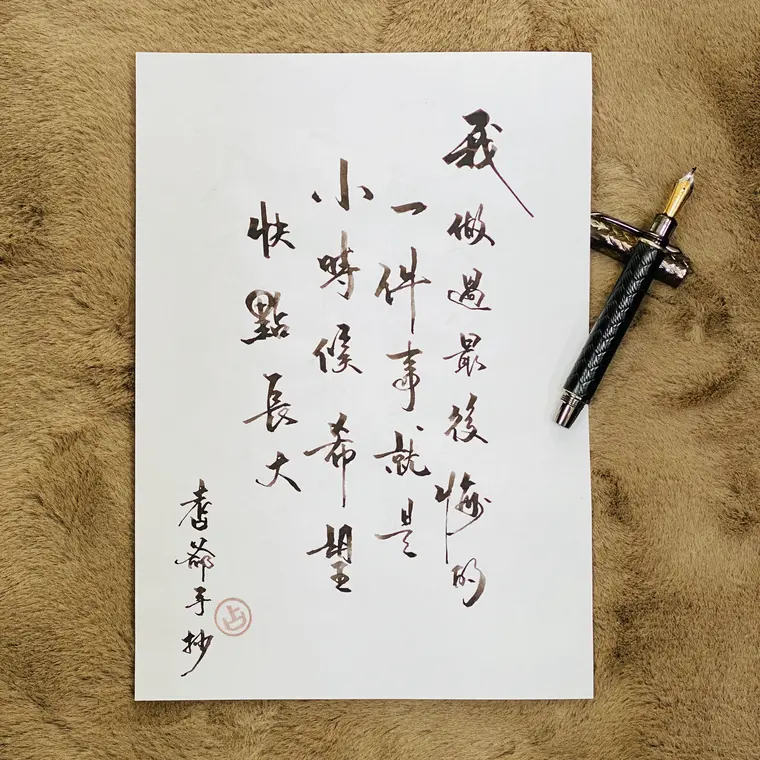 我做過最後悔的
一件事就是
小時候希望
快點長大
耆爺手抄
占